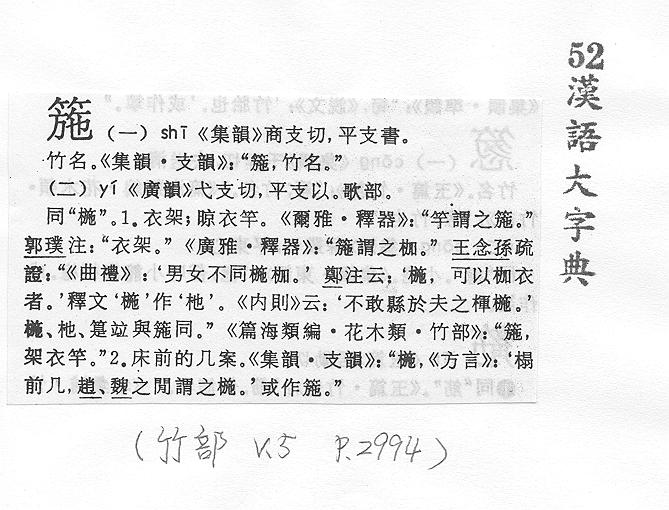 52
漢語大字典
箷 (一) shī《集韻》商支切,平支書。
竹名。《集韻·支韻》:“箷,竹名。”
(二) yí《廣韻》弋支切,平支以。歌部。
同“椸”。1.衣架;晾衣竿。《爾雅·釋器》:“竿謂之箷。”
郭璞注:“衣架。”《廣雅·釋器》:“箷謂之枷。” 王念孫疏
證:“《曲禮》:‘男女不同椸枷。’ 鄭注云:‘椸,可以枷衣
者。’釋文‘椸’作‘杝’。《内則》云:‘不敢縣於夫之楎椸。’
椸、杝、箷竝與箷同。”《篇海類編·花木類·竹部》:“箷,
架衣竿。”2.床前的几案。《集韻·支韻》:“椸,《方言》:‘榻
前几,趙、魏之間謂之椸。’或作箷。”
(竹部 V.5 P.2994)